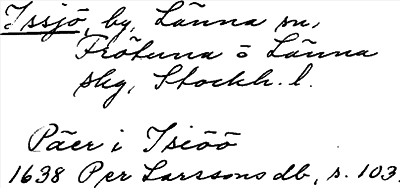 Issjö, by, Länna sn,
Frötuna o Länna
skg, Stockh. l.
Päer i Isiöö
1638 Per Larssons db, s. 103.